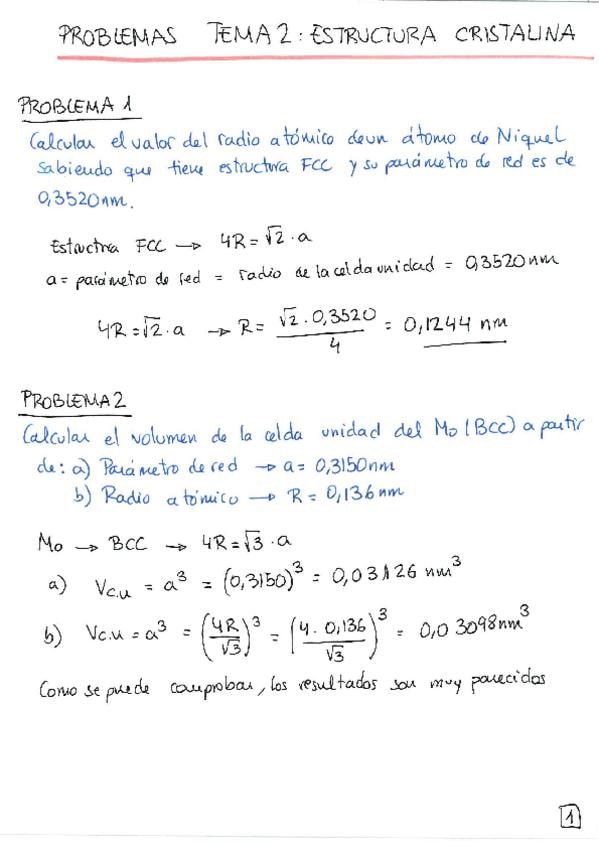 PROBLEMAS TEMA 2: ESTRUCTURA CRISTALINA
PROBLEMA 1
Calcular el valor del radio atómico de un átomo de Niquel
sabiendo que tiene estructura FCC y su parámetro de red es de
0,3520nm.
Estructura FCC → 4R = √2 · a
a = parámetro de red = radio de la celda unidad = 0,3520 nm
4R = √2 · a → R = √2 · 0,3520 / 4 = 0,1244 nm
PROBLEMA 2
Calcular el volumen de la celda unidad del Mo (BCC) a partir
de: a) Parámetro de red → a = 0,3150nm
b) Radio atómico → R = 0,136nm
Mo → BCC → 4R = √3 · a
a) Vc.u = a³ = (0,3150)³ = 0,03126 nm³
b) Vc.u = a³ = (4R/√3)³ = (4 · 0,136/√3)³ = 0,03098nm³
Como se puede comprobar, los resultados son muy parecidos
1